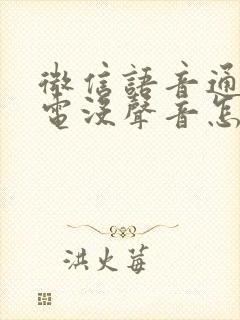 微信語音通
電沒聲音怎
洪火莓